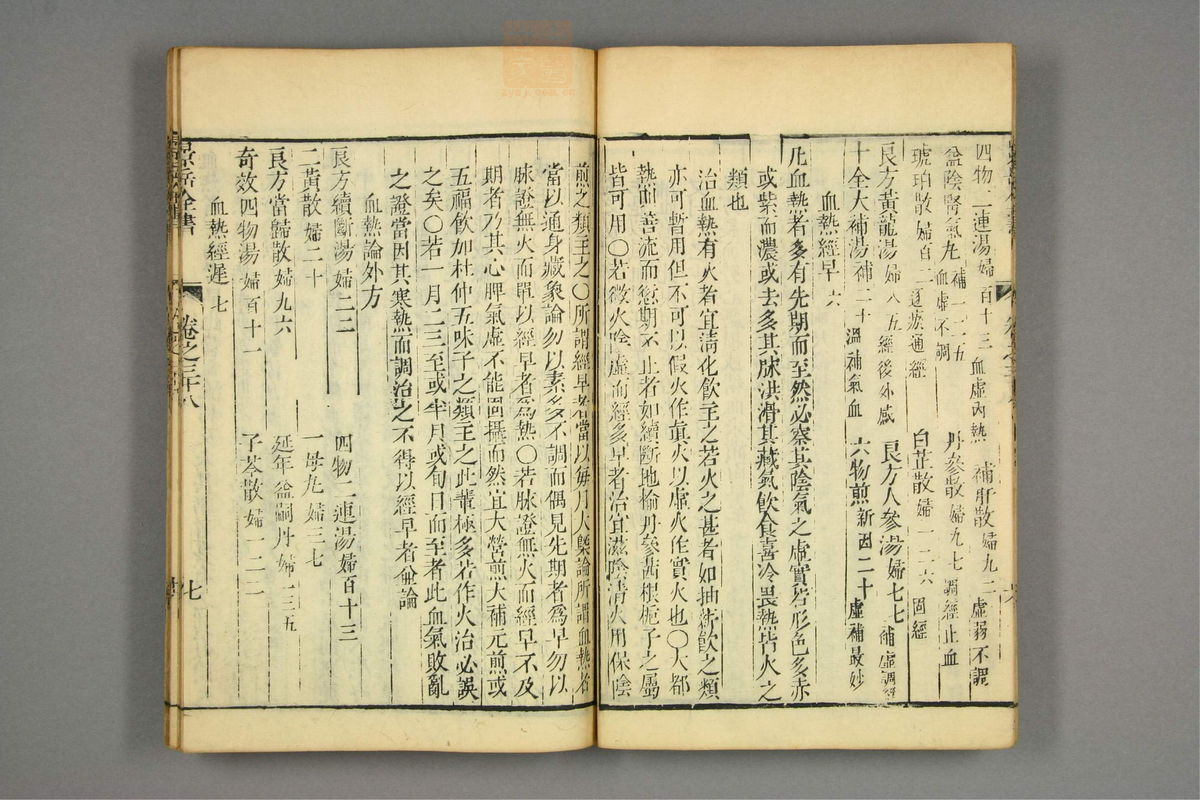 四物二連湯 婦百十三 血虛內熱 補肝散 婦九二 虛弱不調
益陰腎氣丸 補一二五 血虛不調 丹參散 婦九七 調經止血
琥珀散 婦百 逐瘀通經 白芷散 婦一二六 固經
良方黃龍湯 婦八五 經後外感 良方人參湯 婦七七 補虛調經
十全大補湯 補二十 溫補氣血 六物煎 新因二十 虛補最妙
血熱經早 六
凡血熱者多有先期而至然必察其陰氣之虛實若形色多赤
或紫而濃或去多其脉洪滑其藏氣飲食喜冷畏熱皆火之
類也
治血熱有火者宜清化飲主之若火之甚者如抽薪飲之類
亦可暫用但不可以假火作真火以虛火作實火也〇大都
熱則善流而愆期不止者如續斷地榆丹參茜根梔子之屬
皆可用〇若微火陰虛而經多早者治宜滋陰清火用保陰
煎之類主之〇所謂經早者當以每月大槩論所謂血熱者
當以通身藏象論勿以素多不調而偶見先期者爲早勿以
脉證無火而單以經早者爲熱〇若脉證無火而經早不及
期者乃其心脾氣虛不能固攝而然宜大營煎大補元煎或
五福飲加杜仲五味子之類主之此輩極多若作火治必誤
之矣〇若一月二三至或半月或旬日而至者此血氣敗亂
之證當因其寒熱而調治之不得以經早者並論
血熱論外方
良方續斷湯 婦二二 四物二連湯 婦百十三
二黃散 婦二十 一母丸 婦三七
良方當歸散 婦九六 延年益嗣丹 婦一三五
奇效四物湯 婦百十一 子芩散 婦一二二
血熱經遲 七
景岳全書 卷之三十八 七